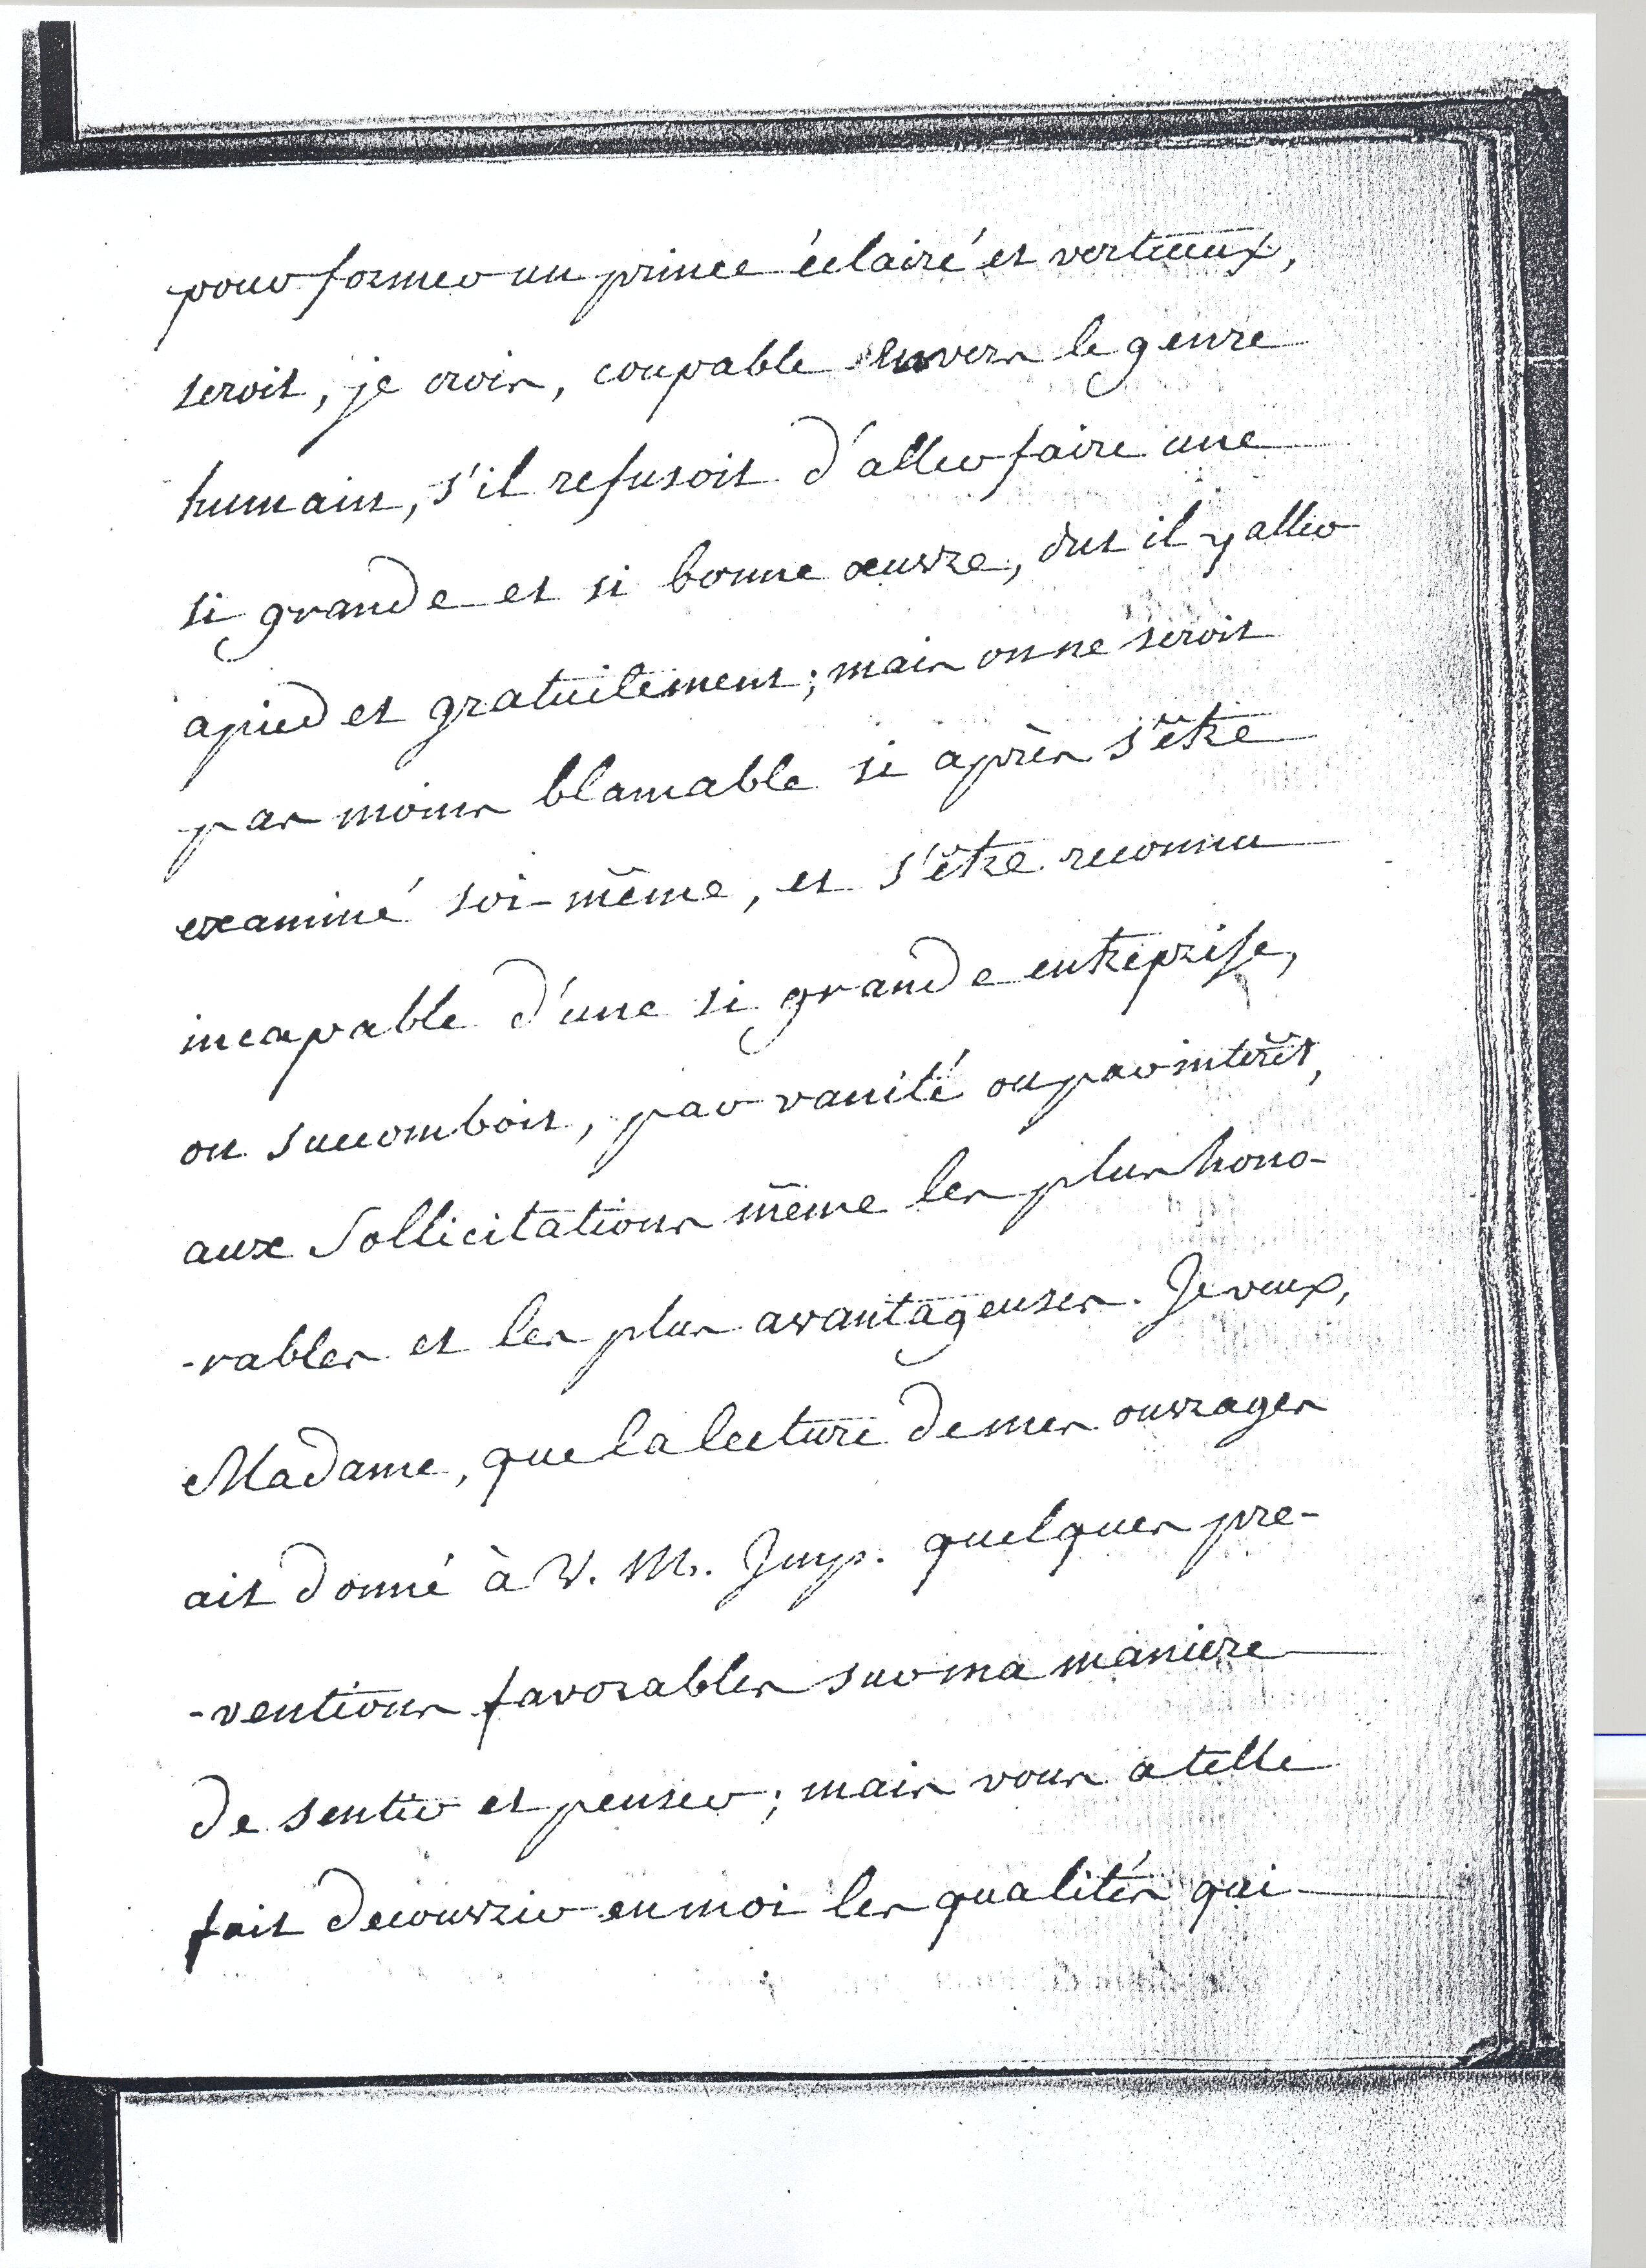 pour former un prince éclairé et vertueux,
seroit, je crois, coupable envers le genre
humain, s'il refusoit d'aller faire une
si grande et si bonne œuvre, dut il y aller
apied et gratuitement; mais on ne seroit
pas moins blamable si après s'être
examiné soi-même, et s'être reconnu
incapable d'une si grande entreprise,
on succomboit, par vanité ou par interêt,
aux sollicitations même les plus hono-
-rables et les plus avantageuses. Je veux,
Madame, que la lecture de mes ouvrages
ait donné à V. M. Imp. quelques pre-
-ventions favorables sur ma maniere
de sentir et penser; mais vous a telle
fait decouvrir en moi les qualités qui